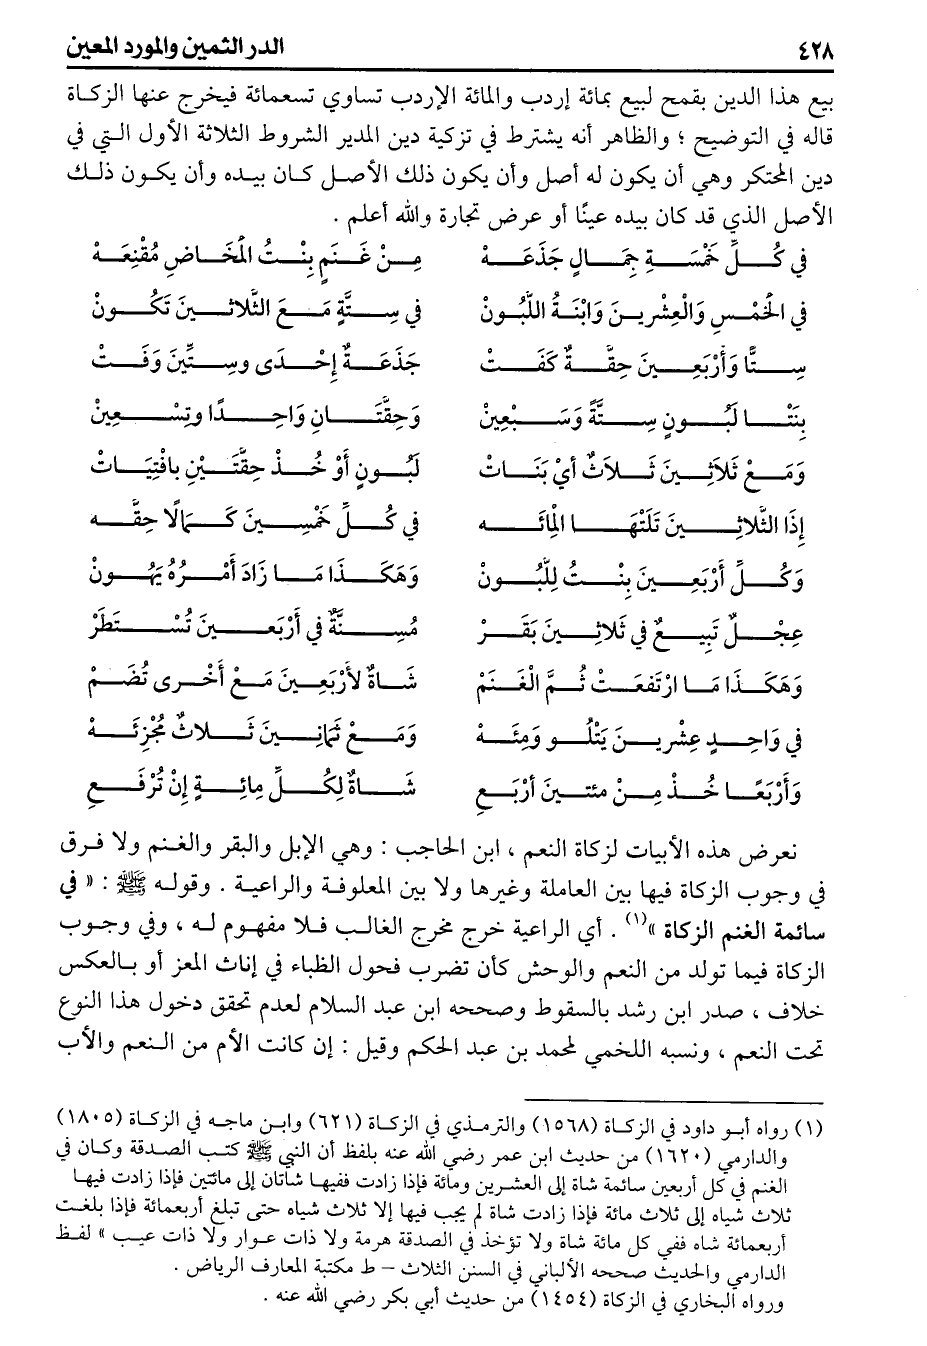 ٤٢٨ الدر الثمين والمورد المعين
بيع هذا الدين بقمح لبيع بمائة إردب والمائة الإردب تساوي تسعمائة فيخرج عنها الزكاة
قاله في التوضيح ؛ والظاهر أنه يشترط في تزكية دين المدير الشروط الثلاثة الأول التي في
دين المحتكر وهي أن يكون له أصل وأن يكون ذلك الأصل كان بيده وأن يكون ذلك
الأصل الذي قد كان بيده عينًا أو عرض تجارة والله أعلم .
في كُلِّ خَمْسَةِ جِمَالٍ جَذَعَهْ مِنْ غَنَمٍ بِنْتُ الْمَخَاضِ مُقْنِعَهْ
في الْخَمْسِ وَالْعِشْرِينَ وَابْنَةُ اللَّبُونْ في سِتَّةٍ مَعَ الثَّلاثِينَ تَكُونْ
سِتًّا وَأَرْبَعِينَ حِقَّةٌ كَفَتْ جَذَعَةٌ إِحْدَى وسِتِّينَ وَفَتْ
بِنْتَا لَبُونٍ سِتَّةً وَسَبْعِينْ وَحِقَّتَانِ وَاحِدًا وتِسْعِينْ
وَمَعْ ثَلاَثِينَ ثَلاَثٌ أيْ بَنَاتْ لَبُونٍ أَوْ خُذْ حِقَّتَيْنِ بافْتِيَاتْ
إِذَا الثَّلاثِينَ تَلَتْهَا الْمِائَه في كُلِّ خَمْسِينَ كَمَالًا حِقَّه
وَكُلِّ أَرْبَعِينَ بِنْتُ لِلَّبُونْ وَهَكَذَا مَا زَادَ أَمْرُهُ يَهُونْ
عِجْلٌ تَبِيعٌ في ثَلاثِينَ بَقَرْ مُسِنَّةٌ في أَرْبَعِينَ تُسْتَطَرْ
وَهَكَذَا مَا ارْتَفَعَتْ ثُمَّ الْغَنَمْ شَاةٌ لأَرْبَعِينَ مَعْ أُخْرى تُضَمْ
في وَاحِدٍ عِشْرِينَ يَتْلُو وَمِئَهْ وَمَعْ ثَمَانِينَ ثَلاثٌ مُجْزِئَهْ
وَأَرْبَعًا خُذْ مِنْ مئتينَ أرْبَعِ شَاةٌ لِكُلِّ مِائِةٍ إِنْ تُرْفَعِ
نعرض هذه الأبيات لزكاة النعم ، ابن الحاجب : وهي الإبل والبقر والغنم ولا فرق
في وجوب الزكاة فيها بين العاملة وغيرها ولا بين المعلوفة والراعية . وقوله ﷺ : « في
سائمة الغنم الزكاة »(١) . أي الراعية خرج مخرج الغالب فلا مفهوم له ، وفي وجوب
الزكاة فيما تولد من النعم والوحش كأن تضرب فحول الظباء في إناث المعز أو بالعكس
خلاف ، صدر ابن رشد بالسقوط وصححه ابن عبد السلام لعدم تحقق دخول هذا النوع
تحت النعم ، ونسبه اللخمي لمحمد بن عبد الحكم وقيل : إن كانت الأم من النعم والأب
(١) رواه أبو داود في الزكاة (١٥٦٨) والترمذي في الزكاة (٦٢١) وابن ماجه في الزكاة (١٨٠٥)
والدارمي (١٦٢٠) من حديث ابن عمر رضي الله عنه بلفظ أن النبي ﷺ كتب الصدقة وكان في
الغنم في كل أربعين سائمة شاة إلى العشرين ومائة فإذا زادت ففيها شاتان إلى مائتين فإذا زادت فيها
ثلاث شياه إلى ثلاث مائة فإذا زادت شاة لم يجب فيها إلا ثلاث شياه حتى تبلغ أربعمائة فإذا بلغت
أربعمائة شاه ففي كل مائة شاة ولا تؤخذ في الصدقة هرمة ولا ذات عوار ولا ذات عيب » لفظ
الدارمي والحديث صححه الألباني في السنن الثلاث – ط مكتبة المعارف الرياض .
ورواه البخاري في الزكاة (١٤٥٤) من حديث أبي بكر رضي الله عنه .